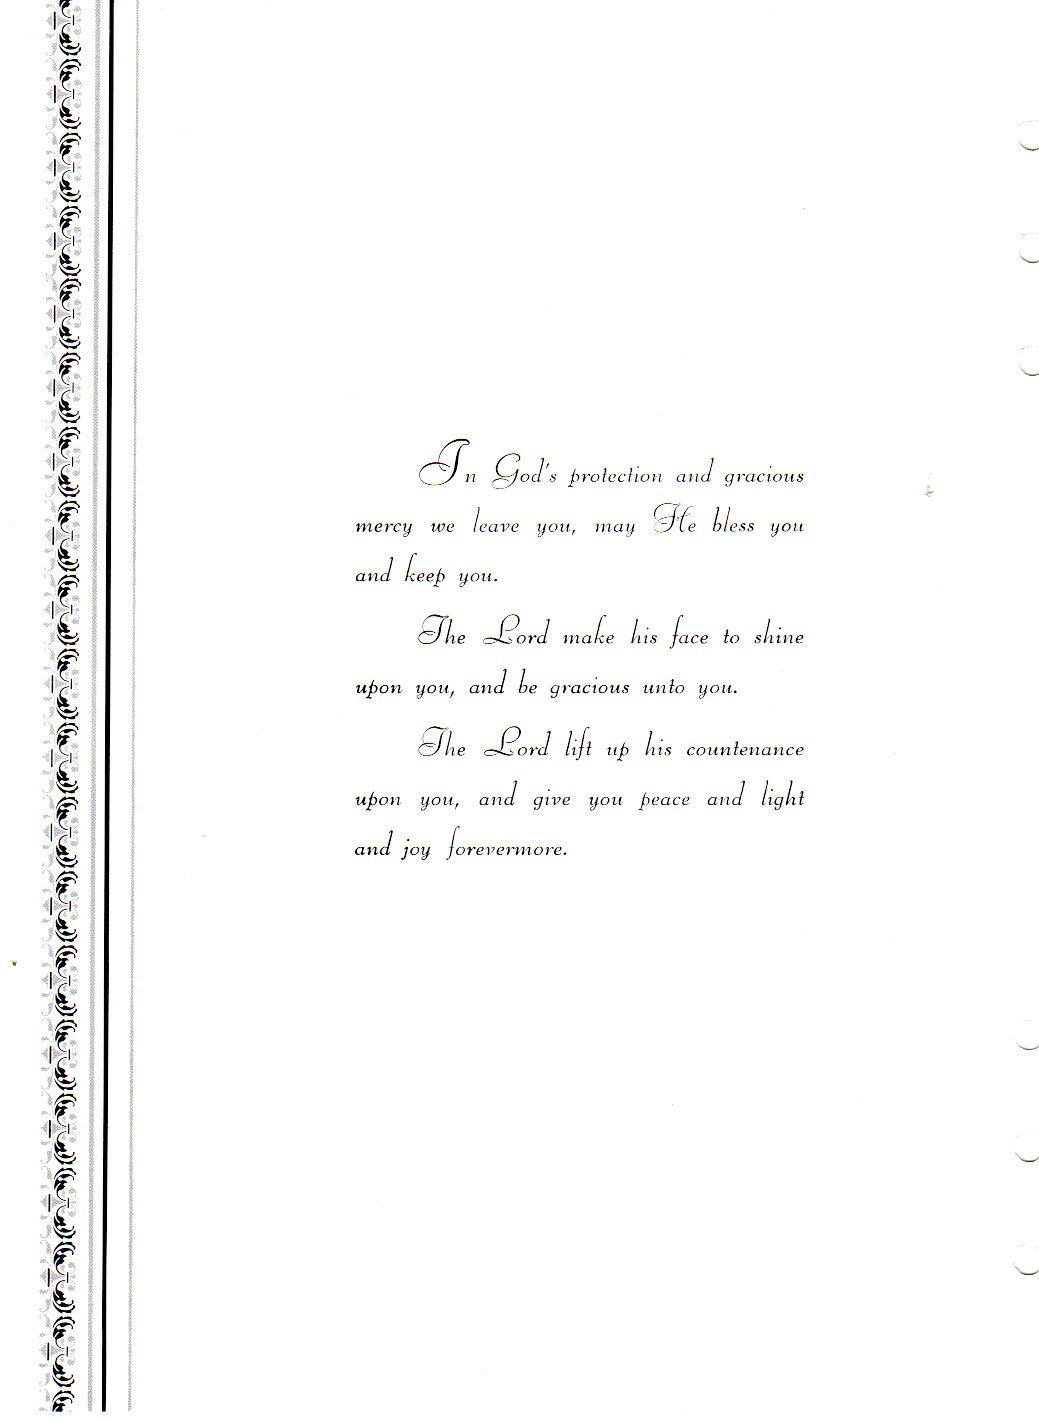 In God's protection and gracious
mercy we leave you, may He bless you
and keep you.
The Lord make his face to shine
upon you, and be gracious unto you.
The Lord lift up his countenance
upon you, and give you peace and light
and joy forevermore.